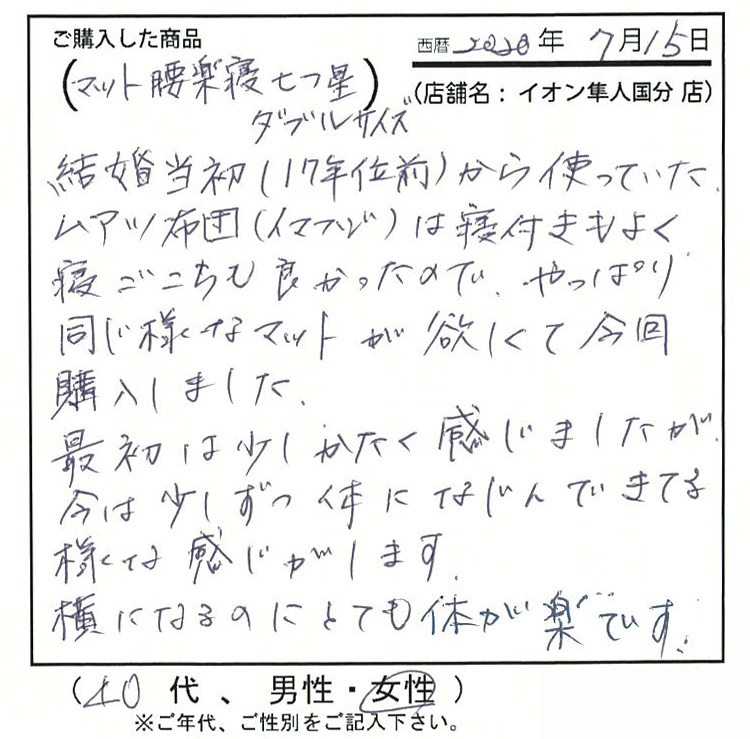 ご購入した商品
西暦 2020年 7月15日
(マット腰楽寝七つ星)
ダブルサイズ
(店舗名：イオン隼人国分 店)
結婚当初(17年位前)から使っていた
ムアツ布団(イマフジ)は寝付きもよく
寝ごこちも良かったので、やっぱり
同じ様なマットが欲しくて今回
購入しました。
最初は少しかたく感じましたが、
今は少しずつ体になじんできてる
様な感じがします。
横になるのにとても体が楽です。
(40代、男性・女性)
※ご年代、ご性別をご記入下さい。